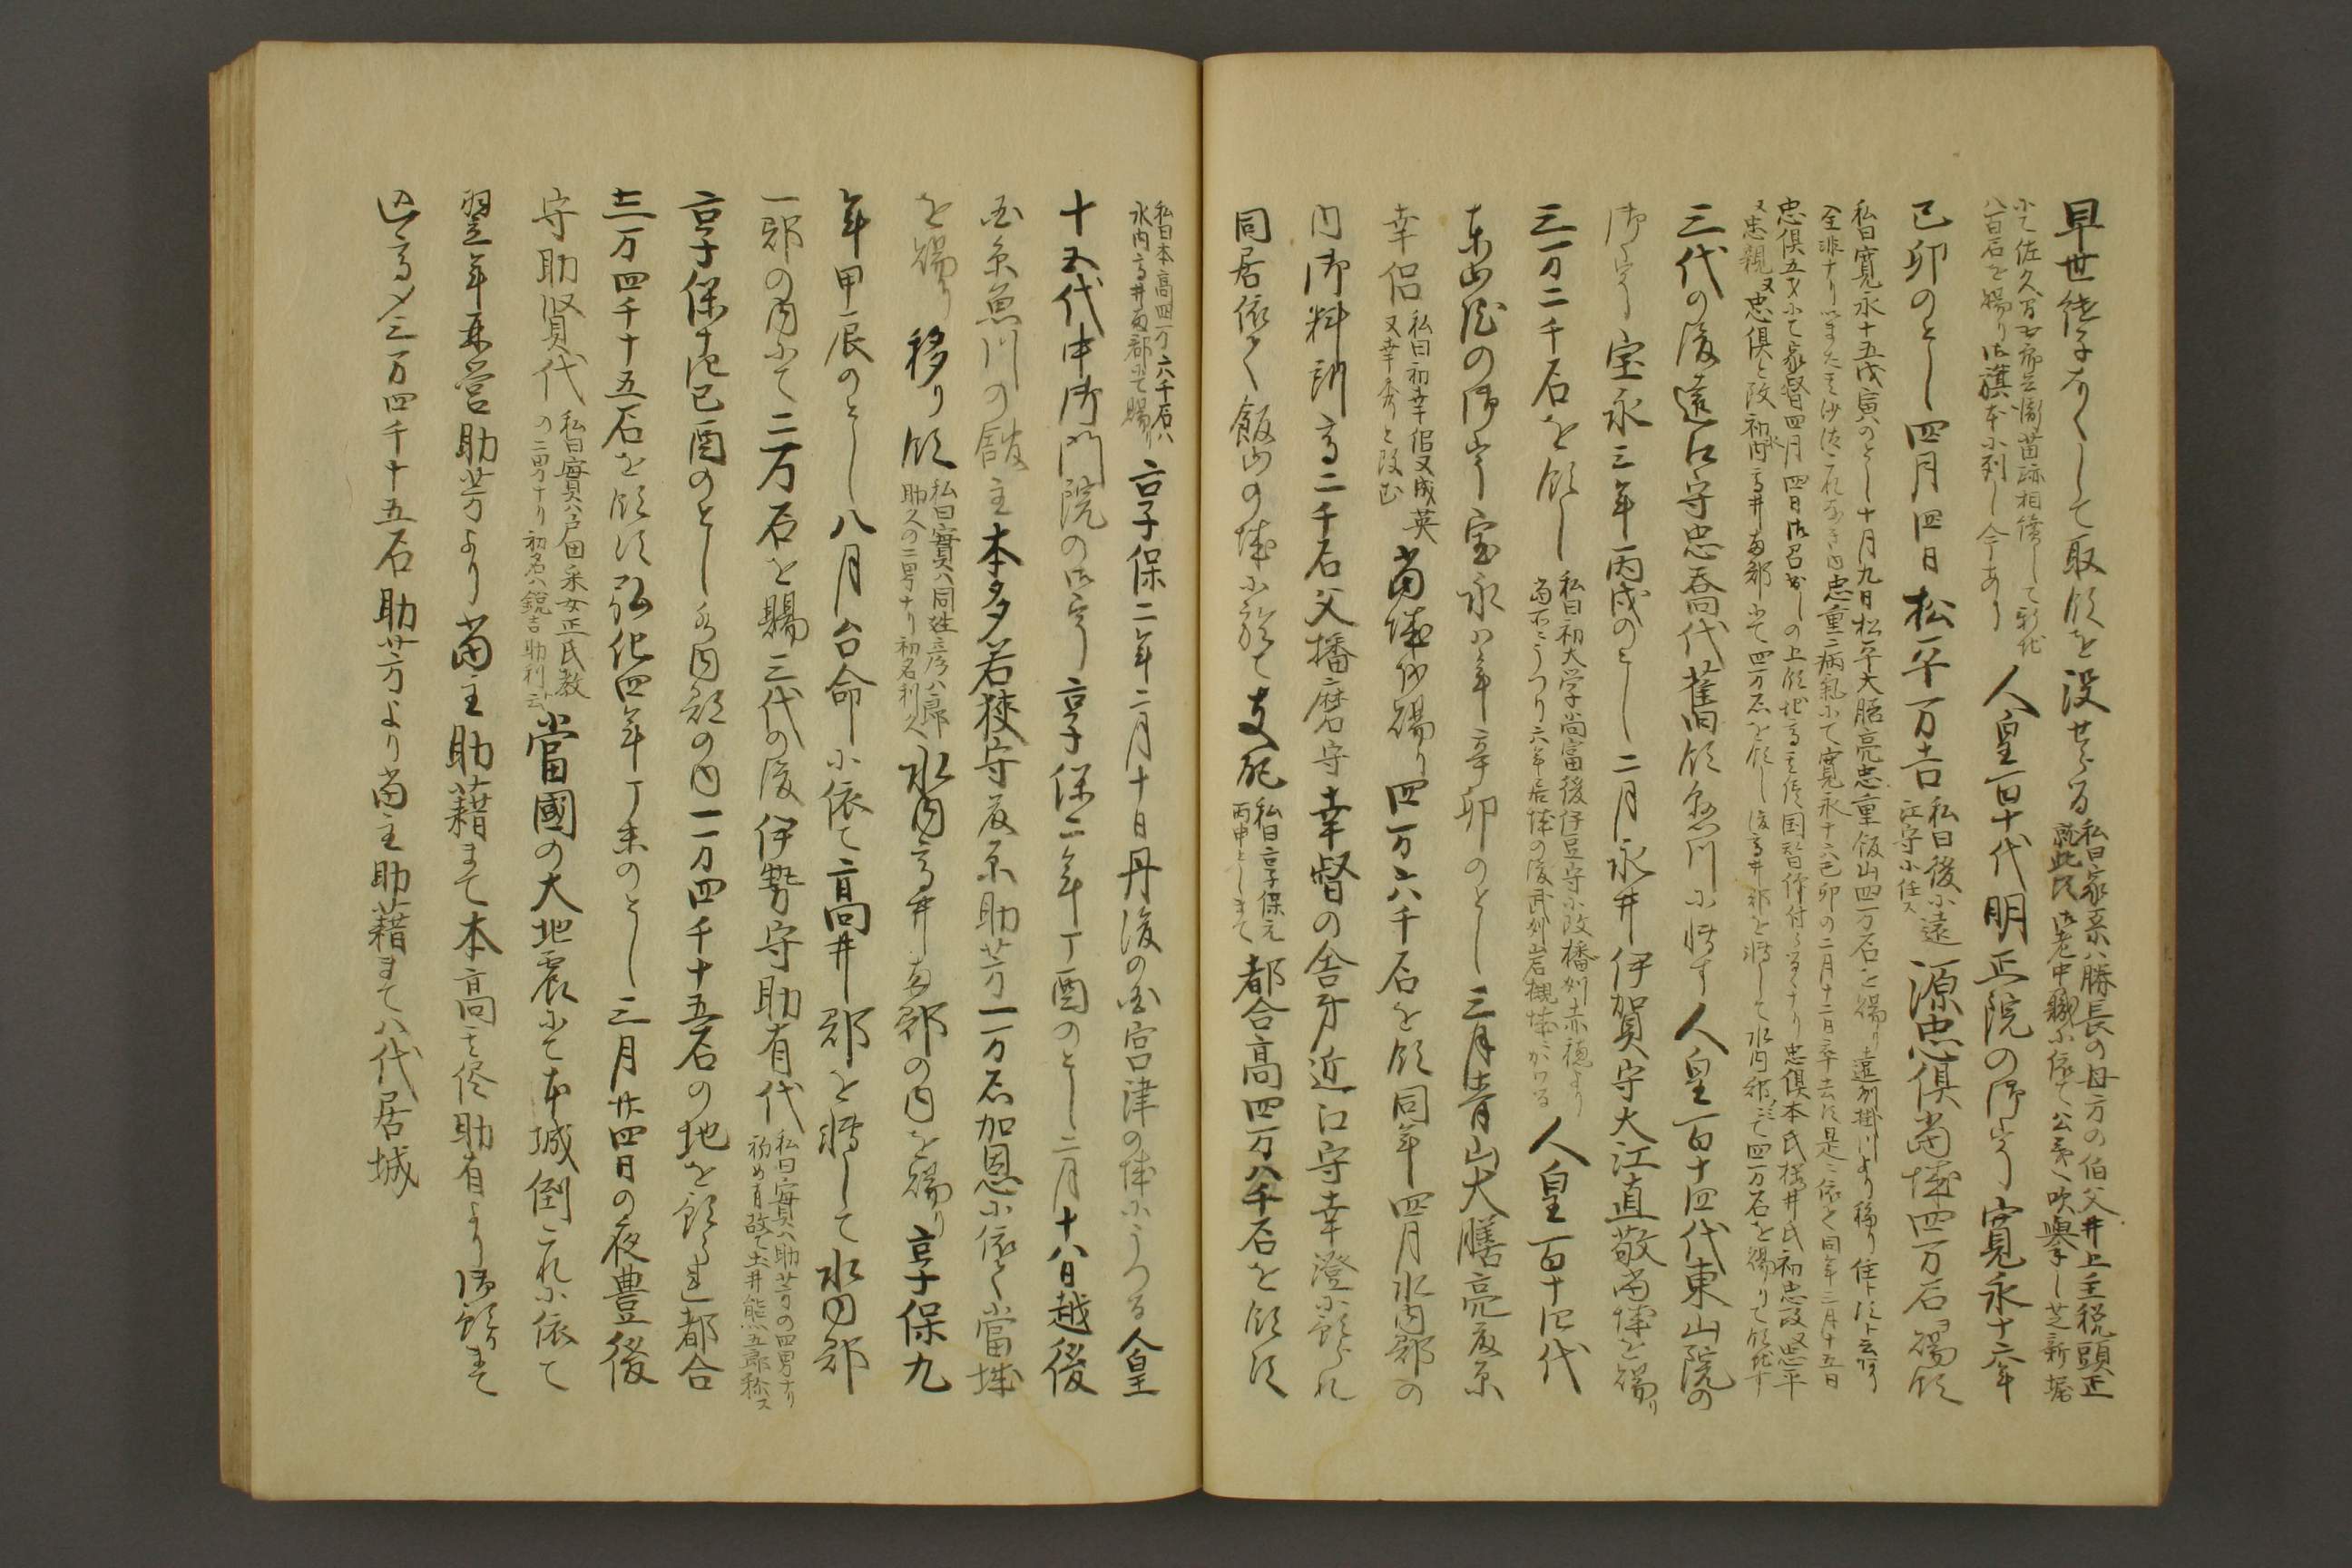 早世継子なくして取領を没せらる 私曰家系ハ勝長の母方の伯父井上主税頭正
就此頃御老中職に依て公義へ吹擧し芝新堀
にて佐久間苗跡相續して新地
八百石を賜り御旗本に列し今あり 人皇百十代明正院の御宇寛永十六年
己卯のとし四月四日松平万吉 私曰後に遠
江守に任ス 源忠倶當城四万石ヲ賜領
私曰寛永十五戊寅のとし十月九日松平大膳亮忠重飯山四万石を賜り遠州掛川より移り住ト
全非ナリいまた其沙汰これなき内忠重病氣にて寛永十六己卯の二月十二日卒去す是ニ依て同年二月十五日
忠倶五才にて家督四月四日御召出しの上領地高其侭国替仰付らるゝナリ忠倶本氏櫻井氏初忠
又忠親又忠倶と改初水内高井両郡にて四万石を領し後高井郡を轉して水内郡にて四万石を賜りて領地す
三代の後遠江守忠喬代舊領懸川に轉す人皇百十四代東山院の
御宇宝永三年丙戌のとし二月永井伊賀守大江直敬當城を賜り
三万二千石を領し 私曰初大学尚富後伊豆守に改播州赤穂より
當所にうつり六年居城の後武州岩槻城にかわる 人皇百十四代
東山院の御宇宝永八年辛卯のとし三月青山大膳亮藤原
幸侶 私曰初幸侶又成英
又幸秀と改む 當城を賜り四万六千石を領同年四月水内郡の
内御料所高二千石父播磨守幸督の舎弟近江守幸澄に預られ
同居依て飯山の城に於て支配 私曰享保元
丙申としまて 都合高四万八千石を領す
私曰本高四万六千石ハ
水内高井両郡にて賜り 享保二年二月十日丹後の国宮津の城にうつる人皇
十五代中御門院の御宇享保二年丁酉のとし二月十八日越後
国糸魚川の舘主本多若狭守藤原助芳一万石加恩に依て當城
を賜り移り領 私曰實ハ同姓彦八郎
助久の二男ナリ初名利久 水内高井両郡の内を賜り享保九
年甲辰のとし八月台命に依て高井郡を轉して水内郡
一郡の内にて二万石を賜三代の後伊勢守助有代 私曰實ハ助芳の四男ナリ
初め有故て土井熊五郎称ス
享保十四己酉のとし水内郡の内一万四千十五石の地を預られ都合
三万四千十五石を領す弘化四年丁未のとし三月廿四日の夜豊後
守助賢代 私曰實ハ戸田采女正氏教
の二男ナリ初名ハ鋭吉助利云 當國の大地震にて本城倒これに依て
翌年再営助芳より當主助藉まて本高其侭助有より御預りまて
込高〆三万四千十五石助芳より當主助藉まて八代居城